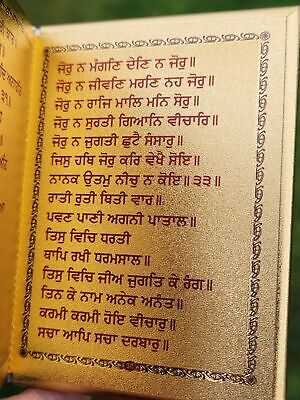 ਜੋਰੁ ਨ ਮੰਗਣਿ ਦੇਣਿ ਨ ਜੋਰੁ॥
ਜੋਰੁ ਨ ਜੀਵਣਿ ਮਰਣਿ ਨਹ ਜੋਰੁ॥
ਜੋਰੁ ਨ ਰਾਜਿ ਮਾਲਿ ਮਨਿ ਸੋਰੁ॥
ਜੋਰੁ ਨ ਸੁਰਤੀ ਗਿਆਨਿ ਵੀਚਾਰਿ॥
ਜੋਰੁ ਨ ਜੁਗਤੀ ਛੁਟੈ ਸੰਸਾਰੁ॥
ਜਿਸੁ ਹਥਿ ਜੋਰੁ ਕਰਿ ਵੇਖੈ ਸੋਇ॥
ਨਾਨਕ ਉਤਮੁ ਨੀਚੁ ਨ ਕੋਇ॥੩੩॥
ਰਾਤੀ ਰੁਤੀ ਥਿਤੀ ਵਾਰ॥
ਪਵਣ ਪਾਣੀ ਅਗਨੀ ਪਾਤਾਲ॥
ਤਿਸੁ ਵਿਚਿ ਧਰਤੀ
ਥਾਪਿ ਰਖੀ ਧਰਮਸਾਲ॥
ਤਿਸੁ ਵਿਚਿ ਜੀਅ ਜੁਗਤਿ ਕੇ ਰੰਗ॥
ਤਿਨ ਕੇ ਨਾਮ ਅਨੇਕ ਅਨੰਤ॥
ਕਰਮੀ ਕਰਮੀ ਹੋਇ ਵੀਚਾਰੁ॥
ਸਚਾ ਆਪਿ ਸਚਾ ਦਰਬਾਰੁ॥